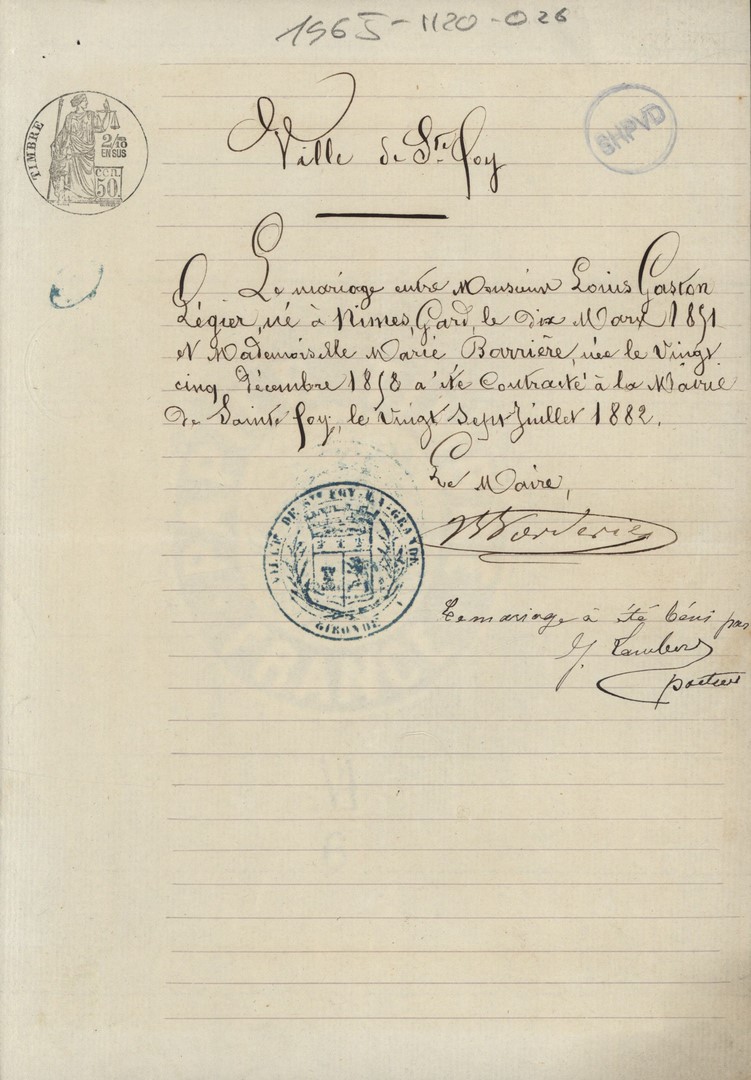 1965-1120-026
TIMBRE
2/10
EN SUS
CEN.
50
SHPVD
Ville de Ste foy
Le mariage entre Monsieur Louis Gaston
Légier, né à Nimes, Gard, le Dix Mars 1851
et Mademoiselle Marie Barrière, née le Vingt
cinq Décembre 1858 a été Contracté à la Mairie
De Sainte foy, le Vingt Sept Juillet 1882.
Le Maire,
VILLE DE STE FOY-LA-GRANDE
GIRONDE
Le mariage à été béni par
pasteur